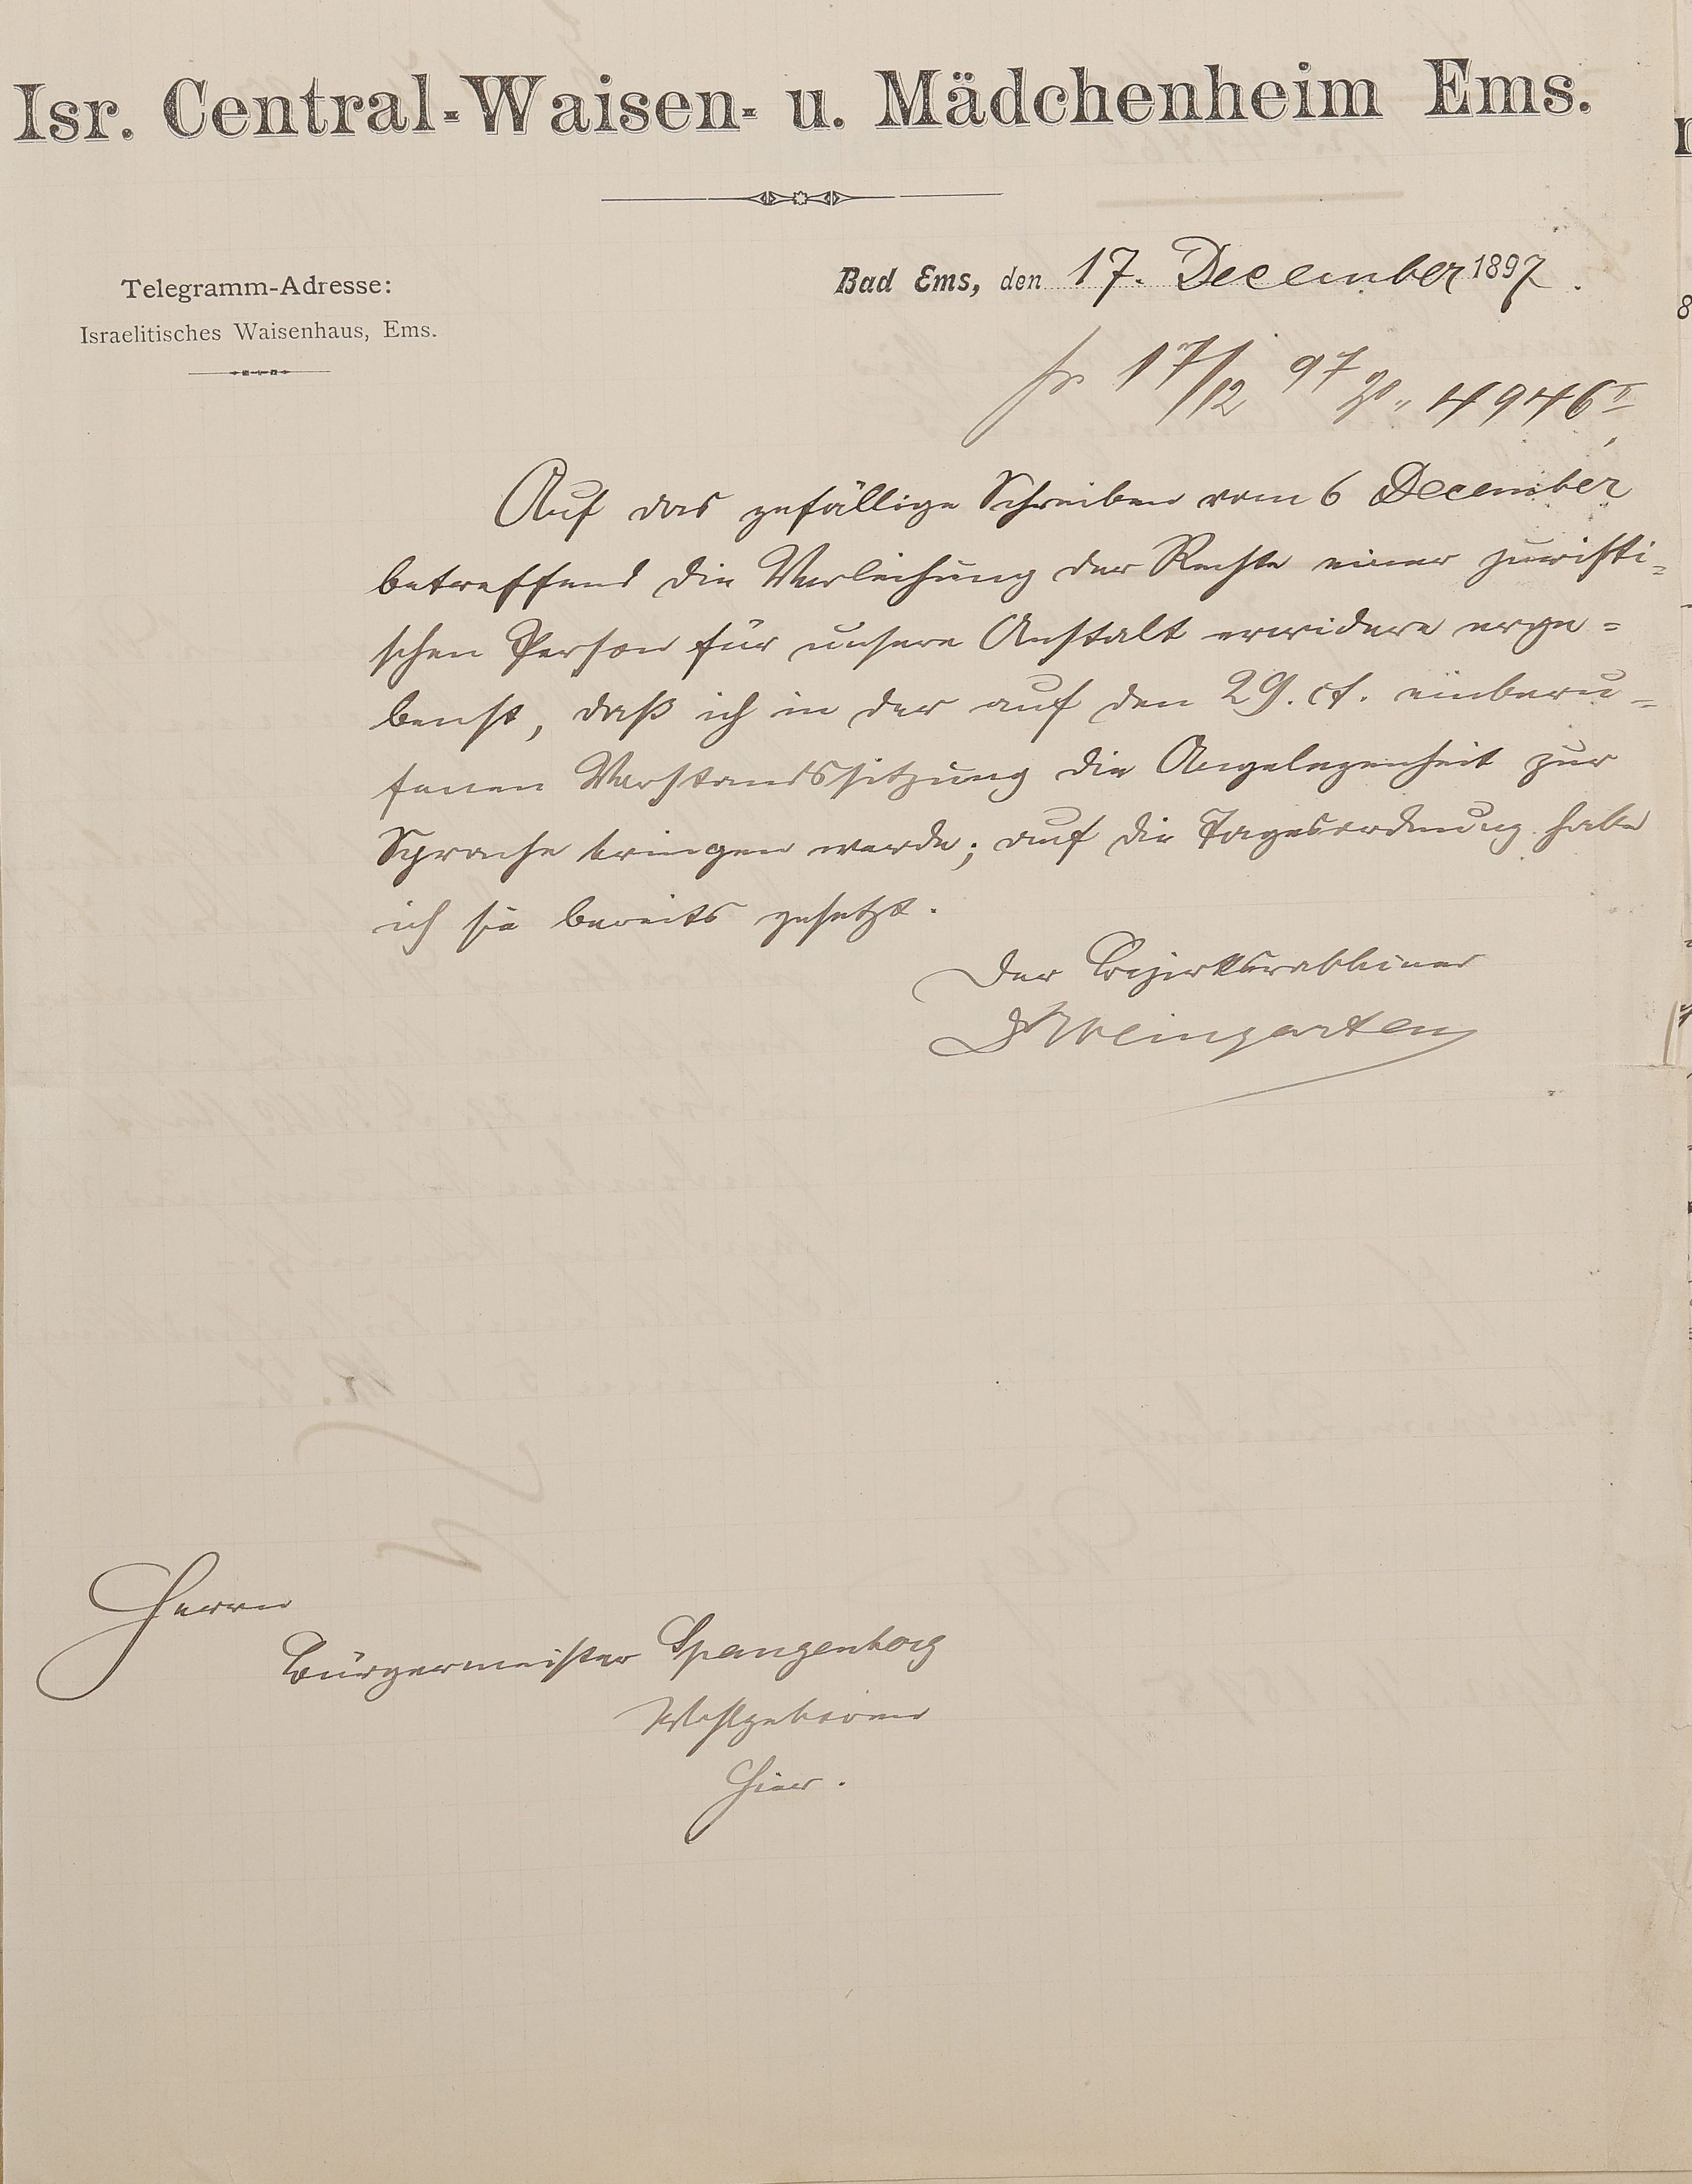 Isr. Central-Waisen- u. Mädchenheim Ems.
Telegramm-Adresse:
Israelitisches Waisenhaus, Ems.
Bad Ems, den 17. December 1897.
pr 17/12 97 4946 I
Auf das gefällige Schreiben vom 6 December
betreffend die Verleihung der Rechte einer juristi-
schen Person für unsere Anstalt erwidere erge-
benst, daß ich in der auf den 29. ct. einberu-
fenen Vorstandssitzung die Angelegenheit zur
Sprache bringen werde; auf die Tagesordnung habe
ich sie bereits gesetzt.
Der Bezirksrabbiner
Dr Weingarten
Herrn
Bürgermeister Spangenberg
Wohlgeboren
Hier.